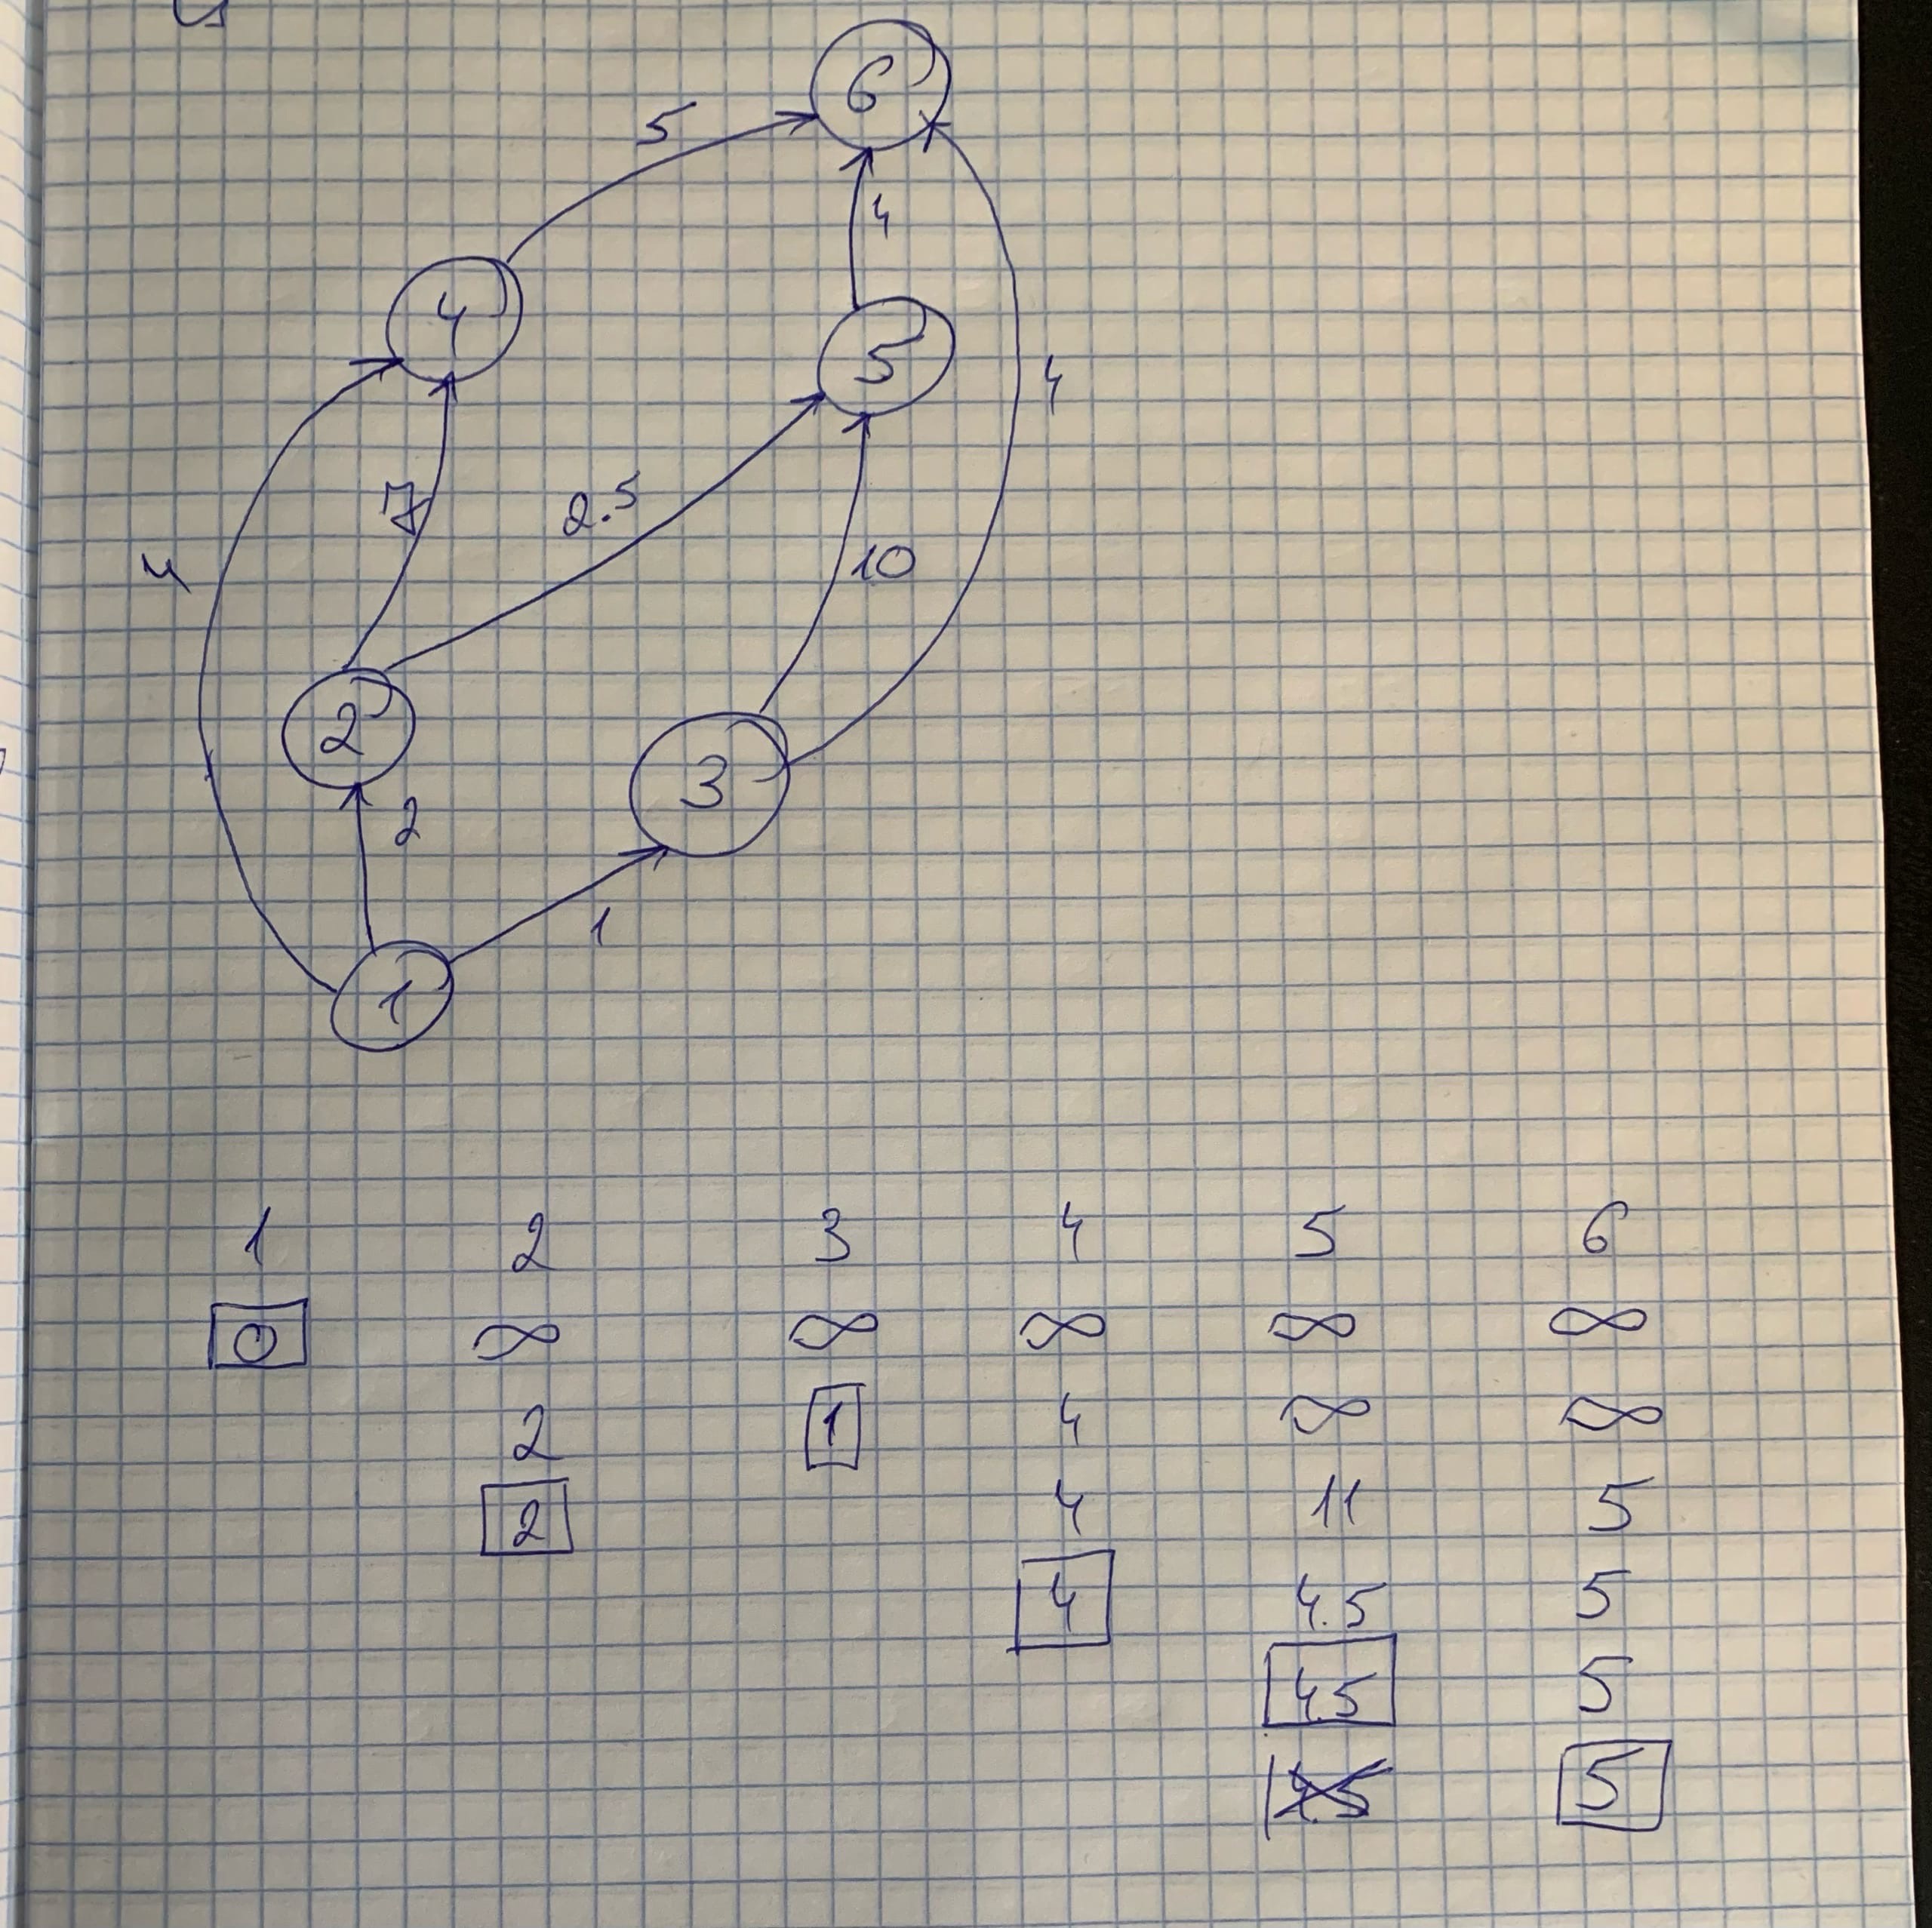 6
5
4
4
5
4
7
2.5
10
4
2
3
2
1
1
1 2 3 4 5 6
0 ∞ ∞ ∞ ∞ ∞
2 1 4 ∞ ∞
2 4 11 5
4 4.5 5
4.5 5
4.5 5